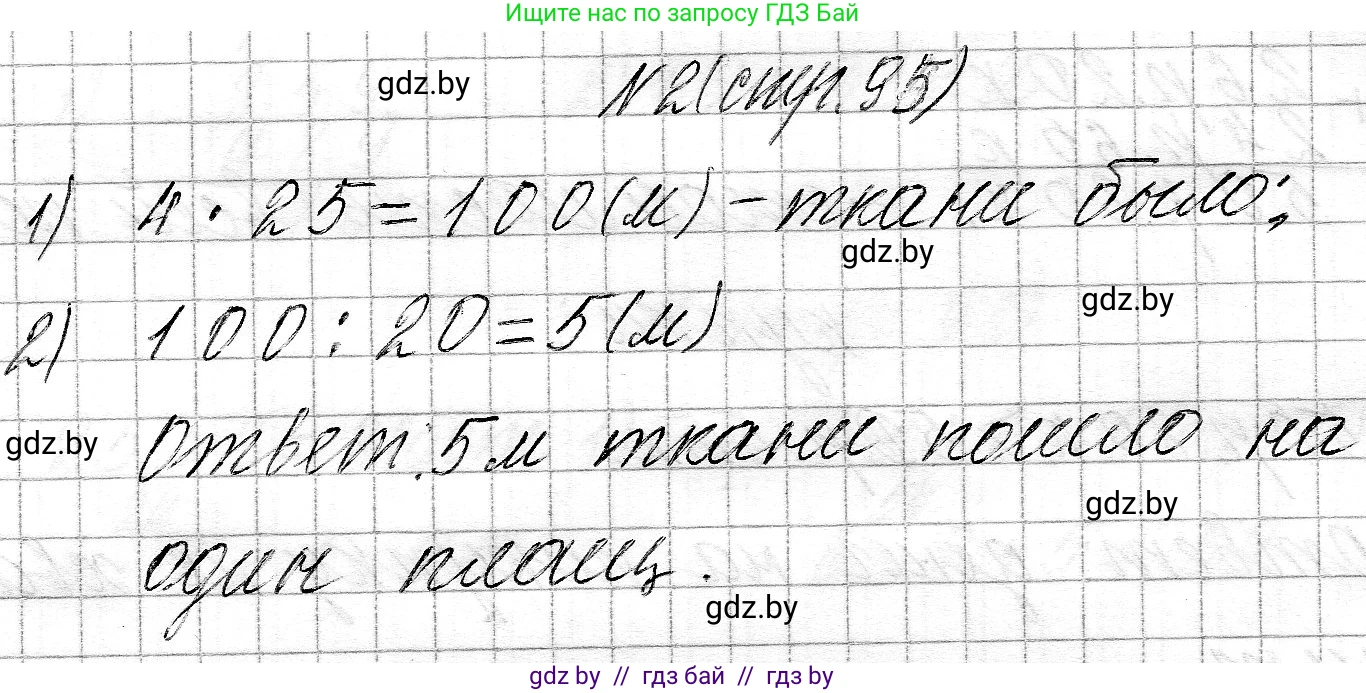 Ищите нас по запросу ГДЗ Бай
gdz.by
№2(стр.95)
1) 4 · 25 = 100(м) - ткани было;
gdz.by
gdz.by
2) 100 : 20 = 5(м)
gdz.by
Ответ: 5м ткани пошло на
gdz.by
один плащ.
gdz.by
gdz.by // гдз бай // гдз by